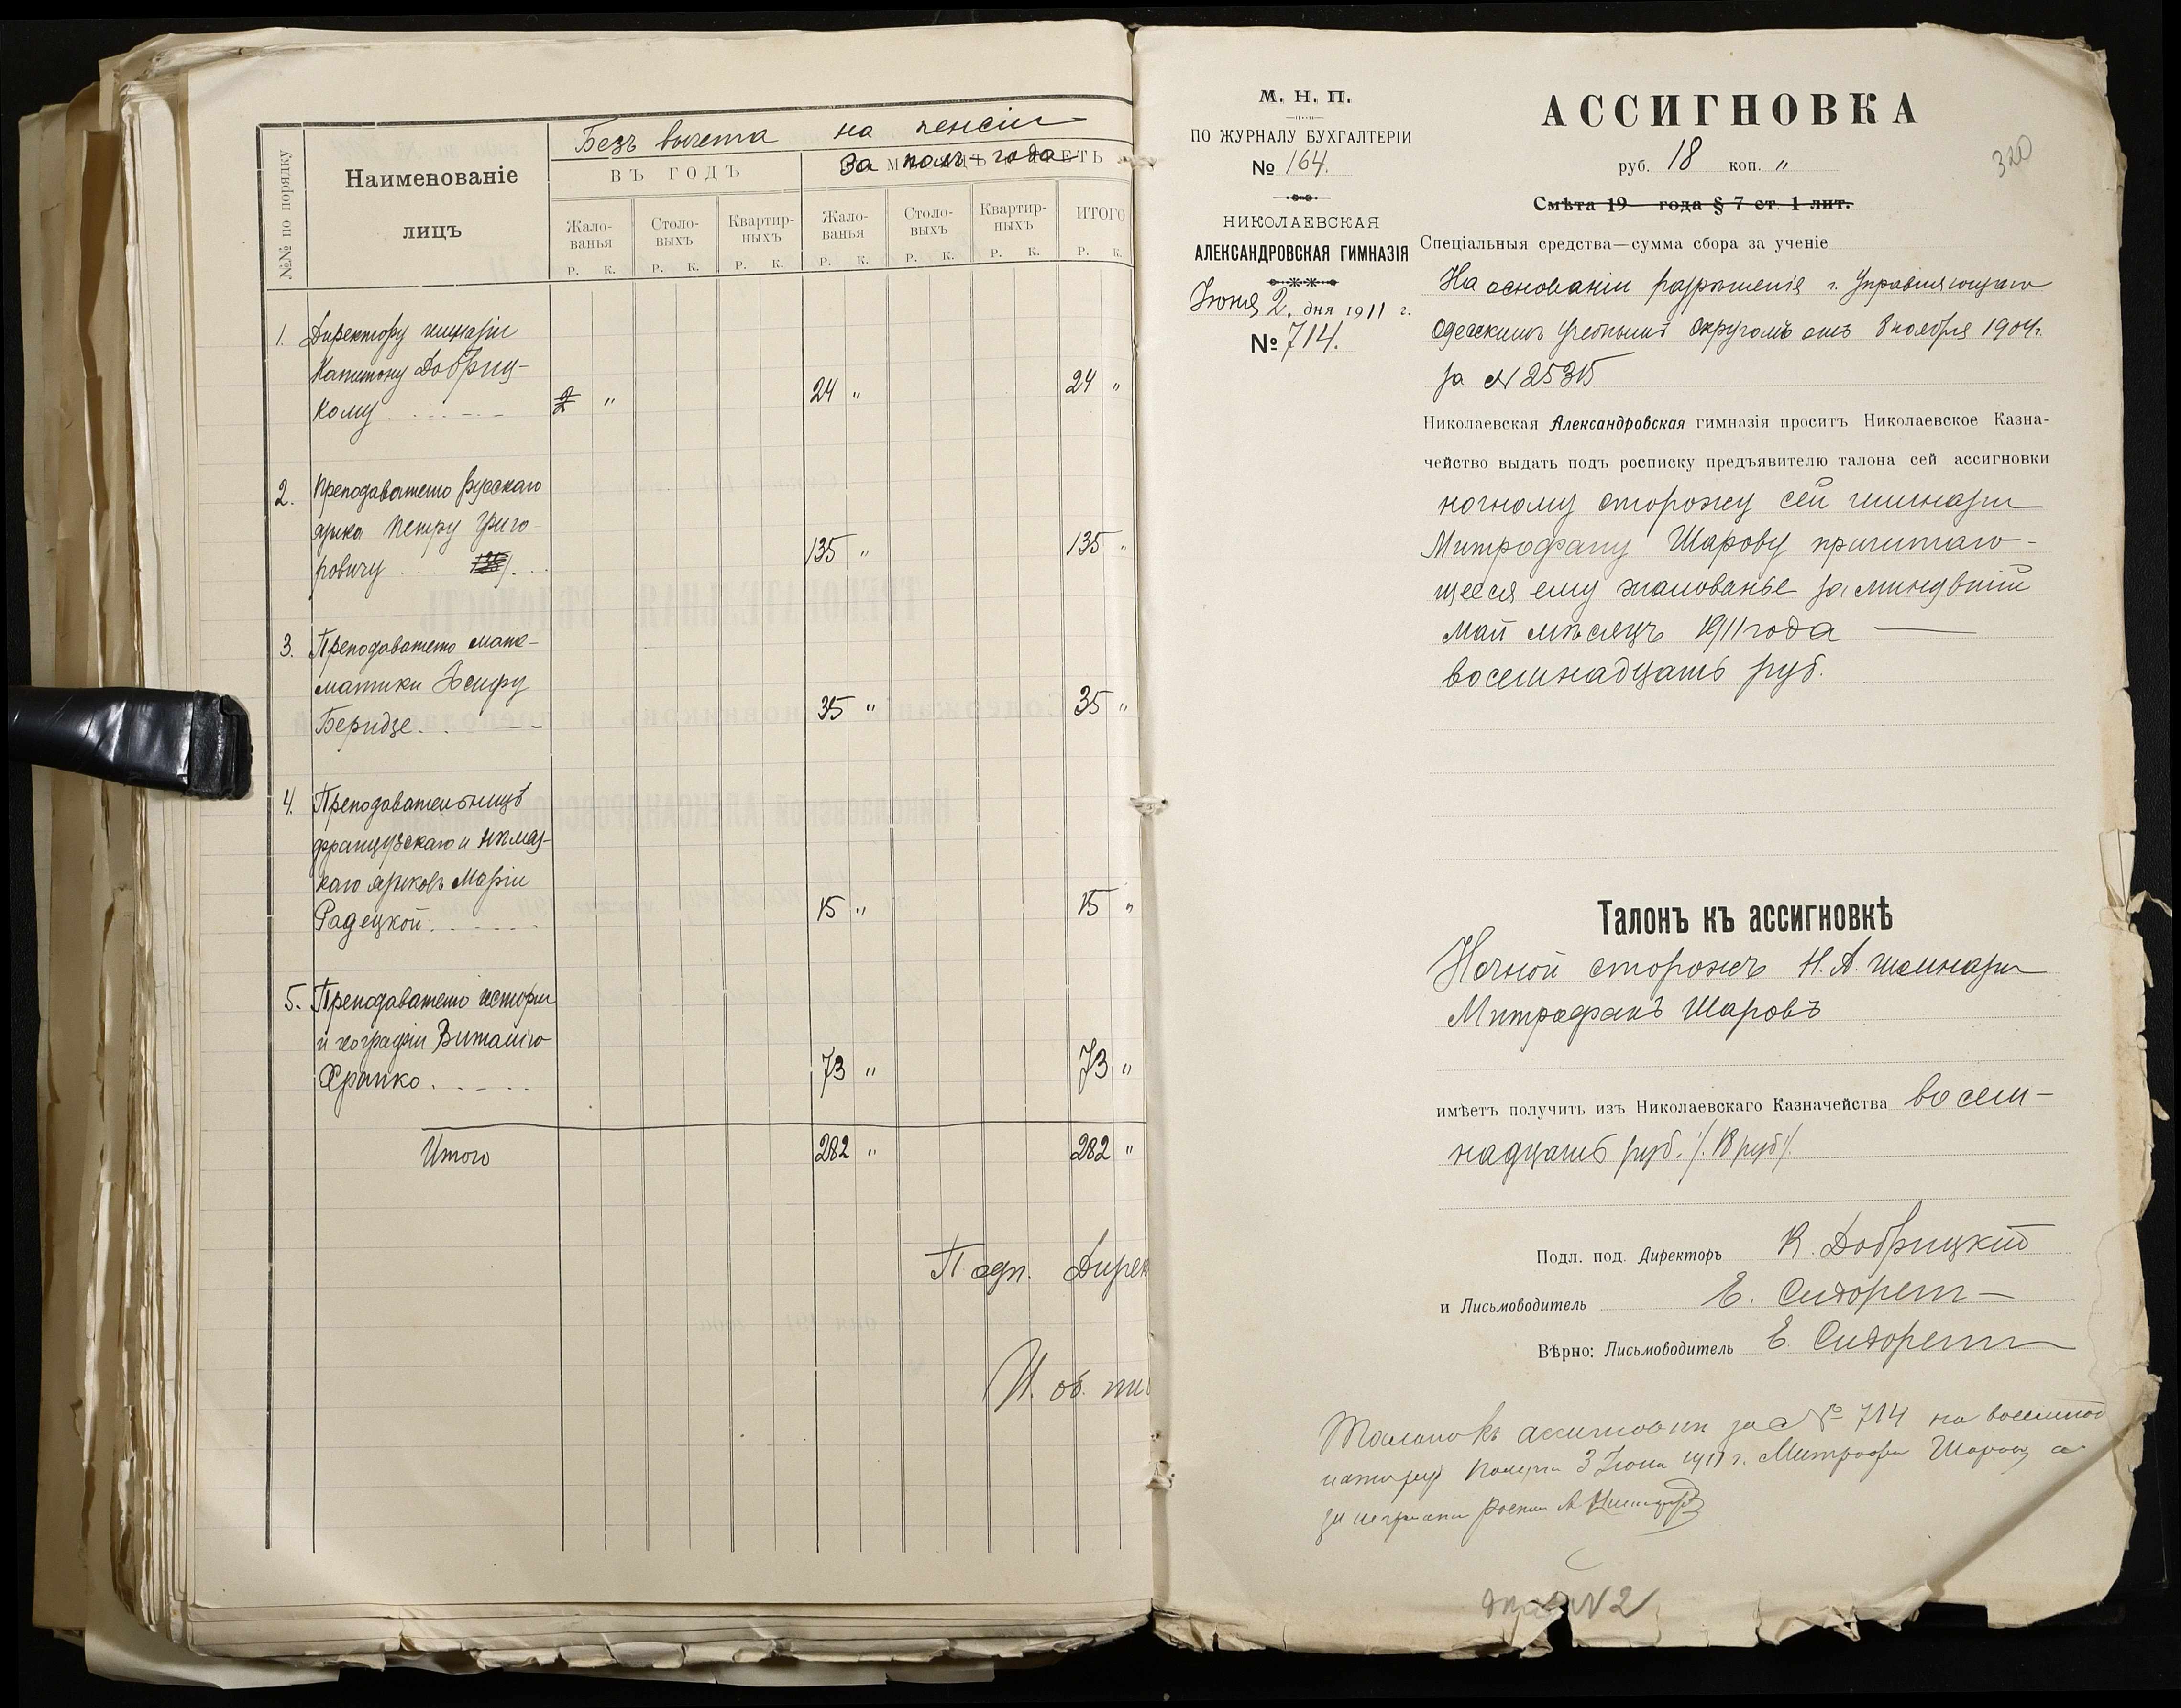 Безъ вычета на пенсіи
№№ по порядку
Наименованіе
лицъ
ВЪ ГОДЪ
За полъ-года
Жало-
ванья
Столо-
выхъ
Квартир-
ныхъ
Жало-
ванья
Столо-
выхъ
Квартир-
ныхъ
ИТОГО
Р. К. Р. К. Р. К. Р. К. Р. К. Р. К. Р. К.
1. Директору гимназіи
Капитону Добриц-
кому 24 " 24 "
2. Преподавателю русскаго
языка Петру Григо-
ровичу 135 " 135 "
3. Преподавателю мате-
матики Іосифу
Беридзе 35 " 35 "
4. Преподавательницѣ
французскаго и нѣмец-
каго языковъ Маріи
Радецкой 15 " 15 "
5. Преподавателю исторіи
и географіи Виталію
Храпко 73 " 73 "
Итого 282 " 282 "
Подп. Дирек
И. об. пи
М. Н. П.
ПО ЖУРНАЛУ БУХГАЛТЕРІИ
№ 164.
НИКОЛАЕВСКАЯ
АЛЕКСАНДРОВСКАЯ ГИМНАЗІЯ
Іюня 2. дня 1911 г.
№ 714.
АССИГНОВКА
320
руб. 18 коп. "
Смѣта 19 года § 7 ст. 1 лит.
Спеціальныя средства—сумма сбора за ученіе
На основаніи разрѣшенія г. Управляющаго
Одесскимъ Учебнымъ Округомъ отъ 8 ноября 1904 г.
за № 25315
Николаевская Александровская гимназія проситъ Николаевское Казна-
чейство выдать подъ росписку предъявителю талона сей ассигновки
ночному сторожу сей гимназіи
Митрофану Шарову причитаю-
щееся ему жалованье за минувшій
май мѣсяцъ 1911 года
восемнадцать руб.
Талонъ къ ассигновкѣ
Ночной сторожъ Н. А. гимназіи
Митрофанъ Шаровъ
имѣетъ получить изъ Николаевскаго Казначейства восем-
надцать руб. /. 18 руб /.
Подл. под. Директоръ К. Добрицкій
и Письмоводитель Е.
Вѣрно: Письмоводитель Е.
Талонъ къ ассигновки за № 714 на
руб получи 3 Іюня 1911 г. Митрофа Шаров
№ 2